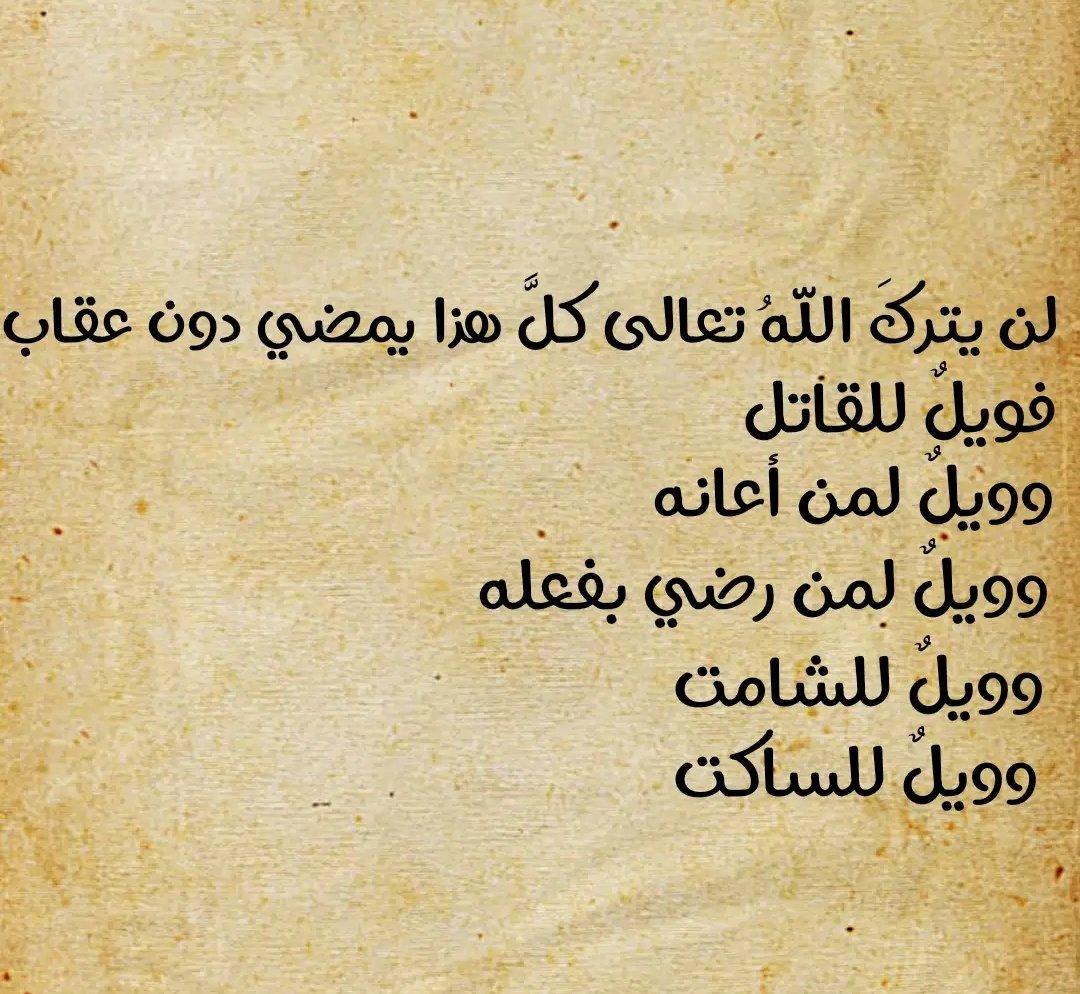 لن يتركَ اللّهُ تعالى كلَّ هزا يمضي دون عقاب
فويلٌ للقاتل
وويلٌ لمن أعانه
وويلٌ لمن رضي بفعله
وويلٌ للشامت
وويلٌ للساكت